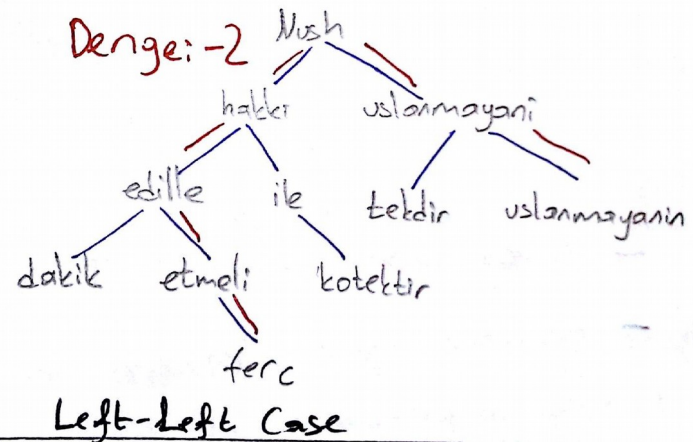 Denge:-2
Nush
hakkı uslanmayani
edille ile tekdir uslanmayanin
dakik etmeli kotektir
ferc
Left-Left Case